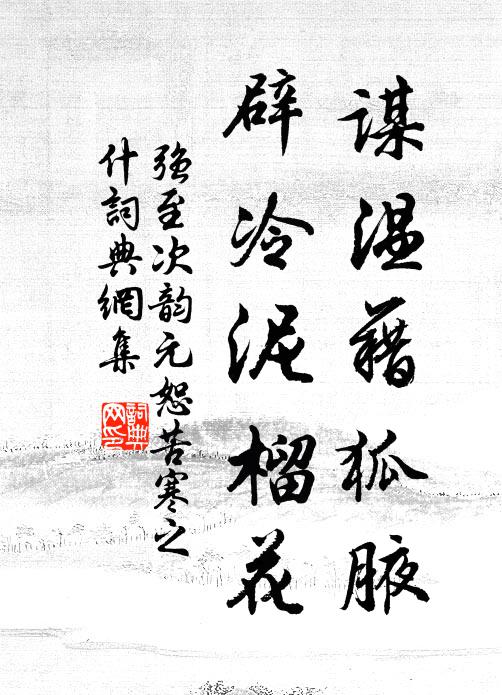 謀溫藉狐腋
辟冷泥榴花
強至次韵元恕苦寒之
什詞典網集
詞典網印